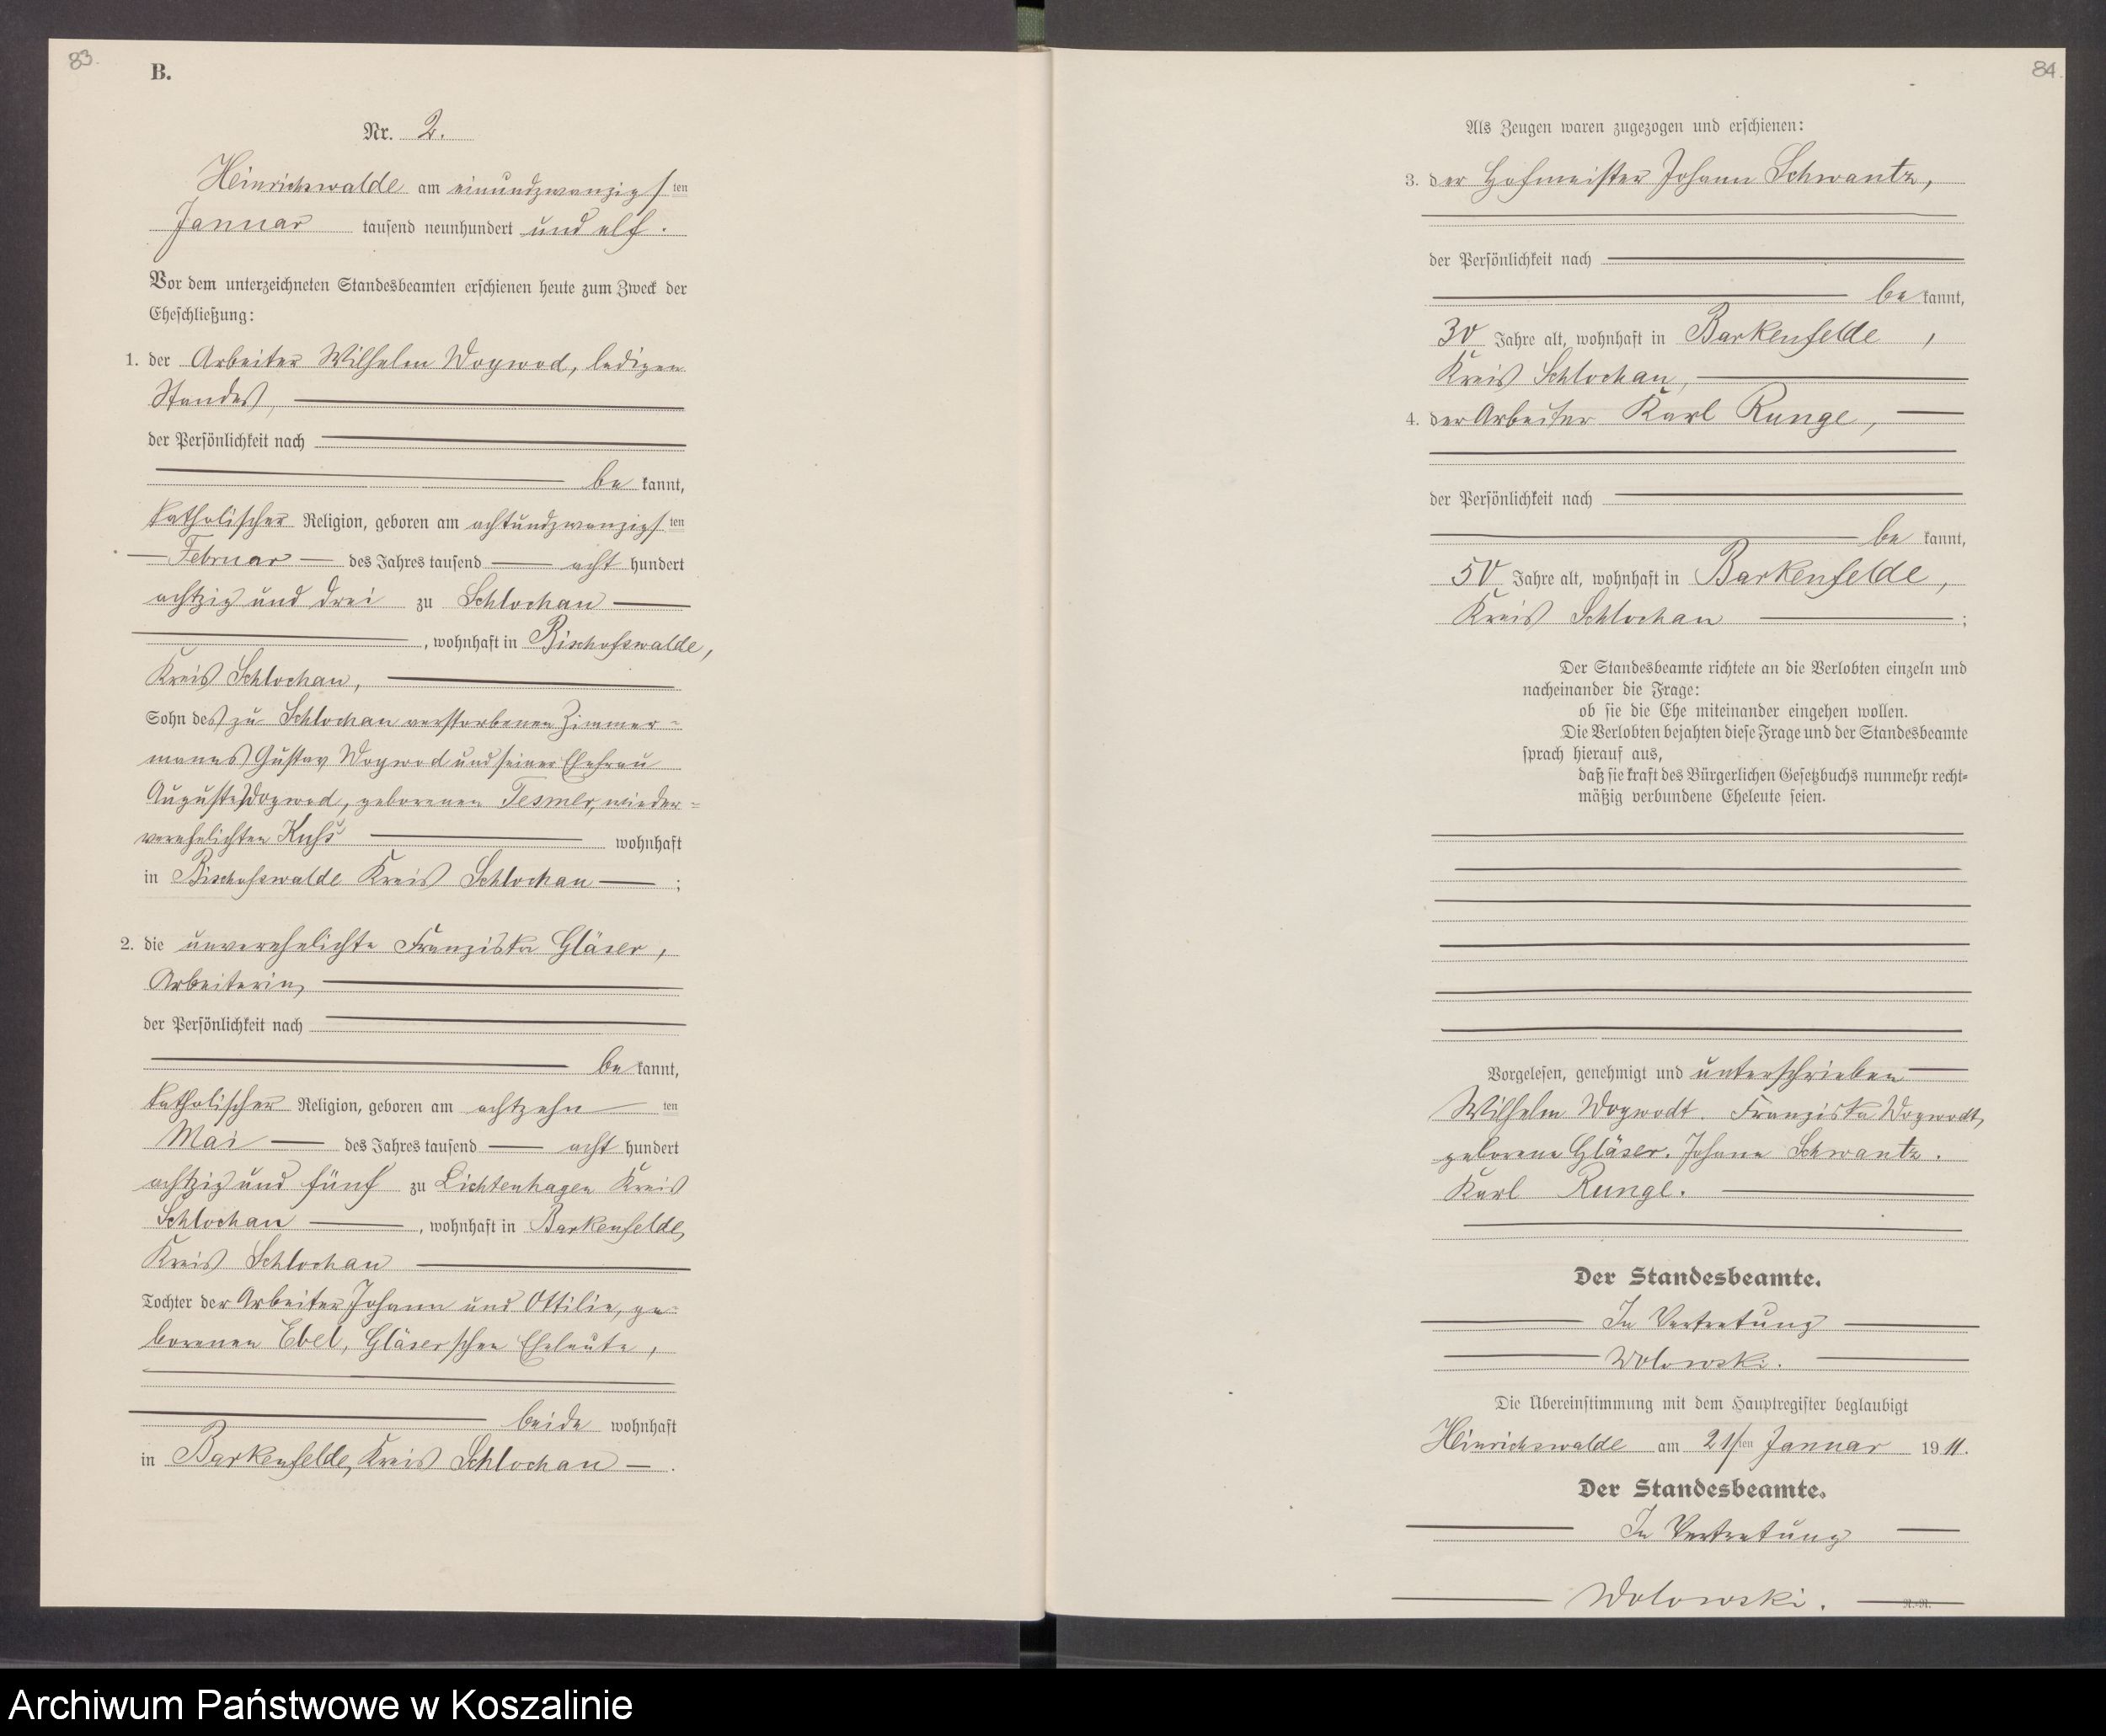 83.
B.
Nr. 2.
Heinrichswalde am einundzwanzigsten
Januar tausend neunhundert und elf.
Vor dem unterzeichneten Standesbeamten erschienen heute zum Zweck der
Eheschließung:
1. der Arbeiter Wilhelm Woywod, ledigen
Standes,
der Persönlichkeit nach
be kannt,
katholischer Religion, geboren am achtundzwanzigsten
Februar des Jahres tausend acht hundert
achtzig und drei zu Schlochau
, wohnhaft in Bischofswalde,
Kreis Schlochau,
Sohn des zu Schlochau verstorbenen Zimmer=
manns Gustav Woywod und seiner Ehefrau
Auguste Woywod, geborenen Tesmer, wieder=
verehelichten Kuhs wohnhaft
in Bischofswalde Kreis Schlochau ;
2. die unverehelichte Franziska Gläser,
Arbeiterin,
der Persönlichkeit nach
be kannt,
katholischer Religion, geboren am achtzehn ten
Mai des Jahres tausend acht hundert
achtzig und fünf zu Lichtenhagen Kreis
Schlochau , wohnhaft in Barkenfelde,
Kreis Schlochau
Tochter der Arbeiter Johann und Ottilie, ge=
borenen Ebel, Gläser'schen Eheleute,
beide wohnhaft
in Barkenfelde, Kreis Schlochau .
84.
Als Zeugen waren zugezogen und erschienen:
3. der Hofmeister Johann Schwantz,
der Persönlichkeit nach
be kannt,
30 Jahre alt, wohnhaft in Barkenfelde,
Kreis Schlochau,
4. der Arbeiter Karl Runge,
der Persönlichkeit nach
be kannt,
50 Jahre alt, wohnhaft in Barkenfelde,
Kreis Schlochau ;
Der Standesbeamte richtete an die Verlobten einzeln und
nacheinander die Frage:
ob sie die Ehe miteinander eingehen wollen.
Die Verlobten bejahten diese Frage und der Standesbeamte
sprach hierauf aus,
daß sie kraft des Bürgerlichen Gesetzbuchs nunmehr recht=
mäßig verbundene Eheleute seien.
Vorgelesen, genehmigt und unterschrieben
Wilhelm Woywodt. Franziska Woywodt,
geborene Gläser. Johann Schwantz.
Karl Runge.
Der Standesbeamte.
In Vertretung
Wolowski.
Die Übereinstimmung mit dem Hauptregister beglaubigt
Heinrichswalde am 21sten Januar 1911.
Der Standesbeamte.
In Vertretung
Wolowski.
Archiwum Państwowe w Koszalinie